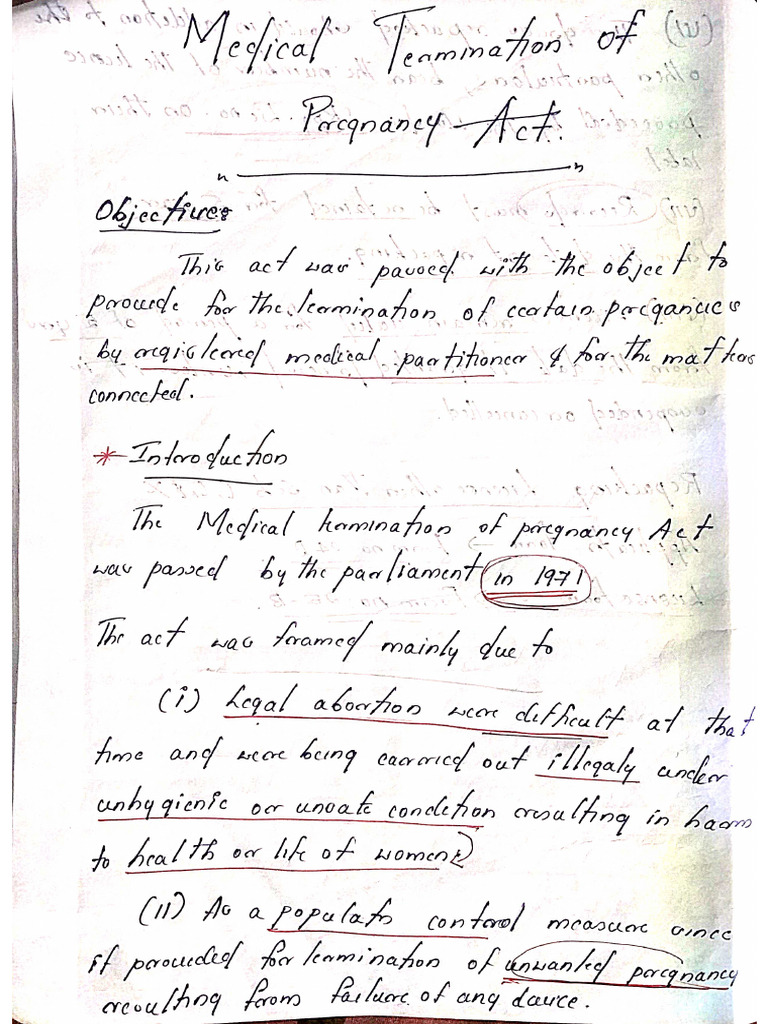 Medical Termination of
Pregnancy Act.
Objective:
This act was passed with the object to
provide for the termination of certain pregancies
by registered medical partitioner & for the matters
connected.
* Introduction
The Medical termination of pregnancy Act
was passed by the parliament in 1971
The act was framed mainly due to
(i) Legal abortion were difficult at that
time and were being carried out illegaly under
unhygienic or unsafe condition resulting in harm
to health or life of women
(II) As a populatn control measure since
it provided for termination of unwanted pregnancy
resulting from failure of any device.